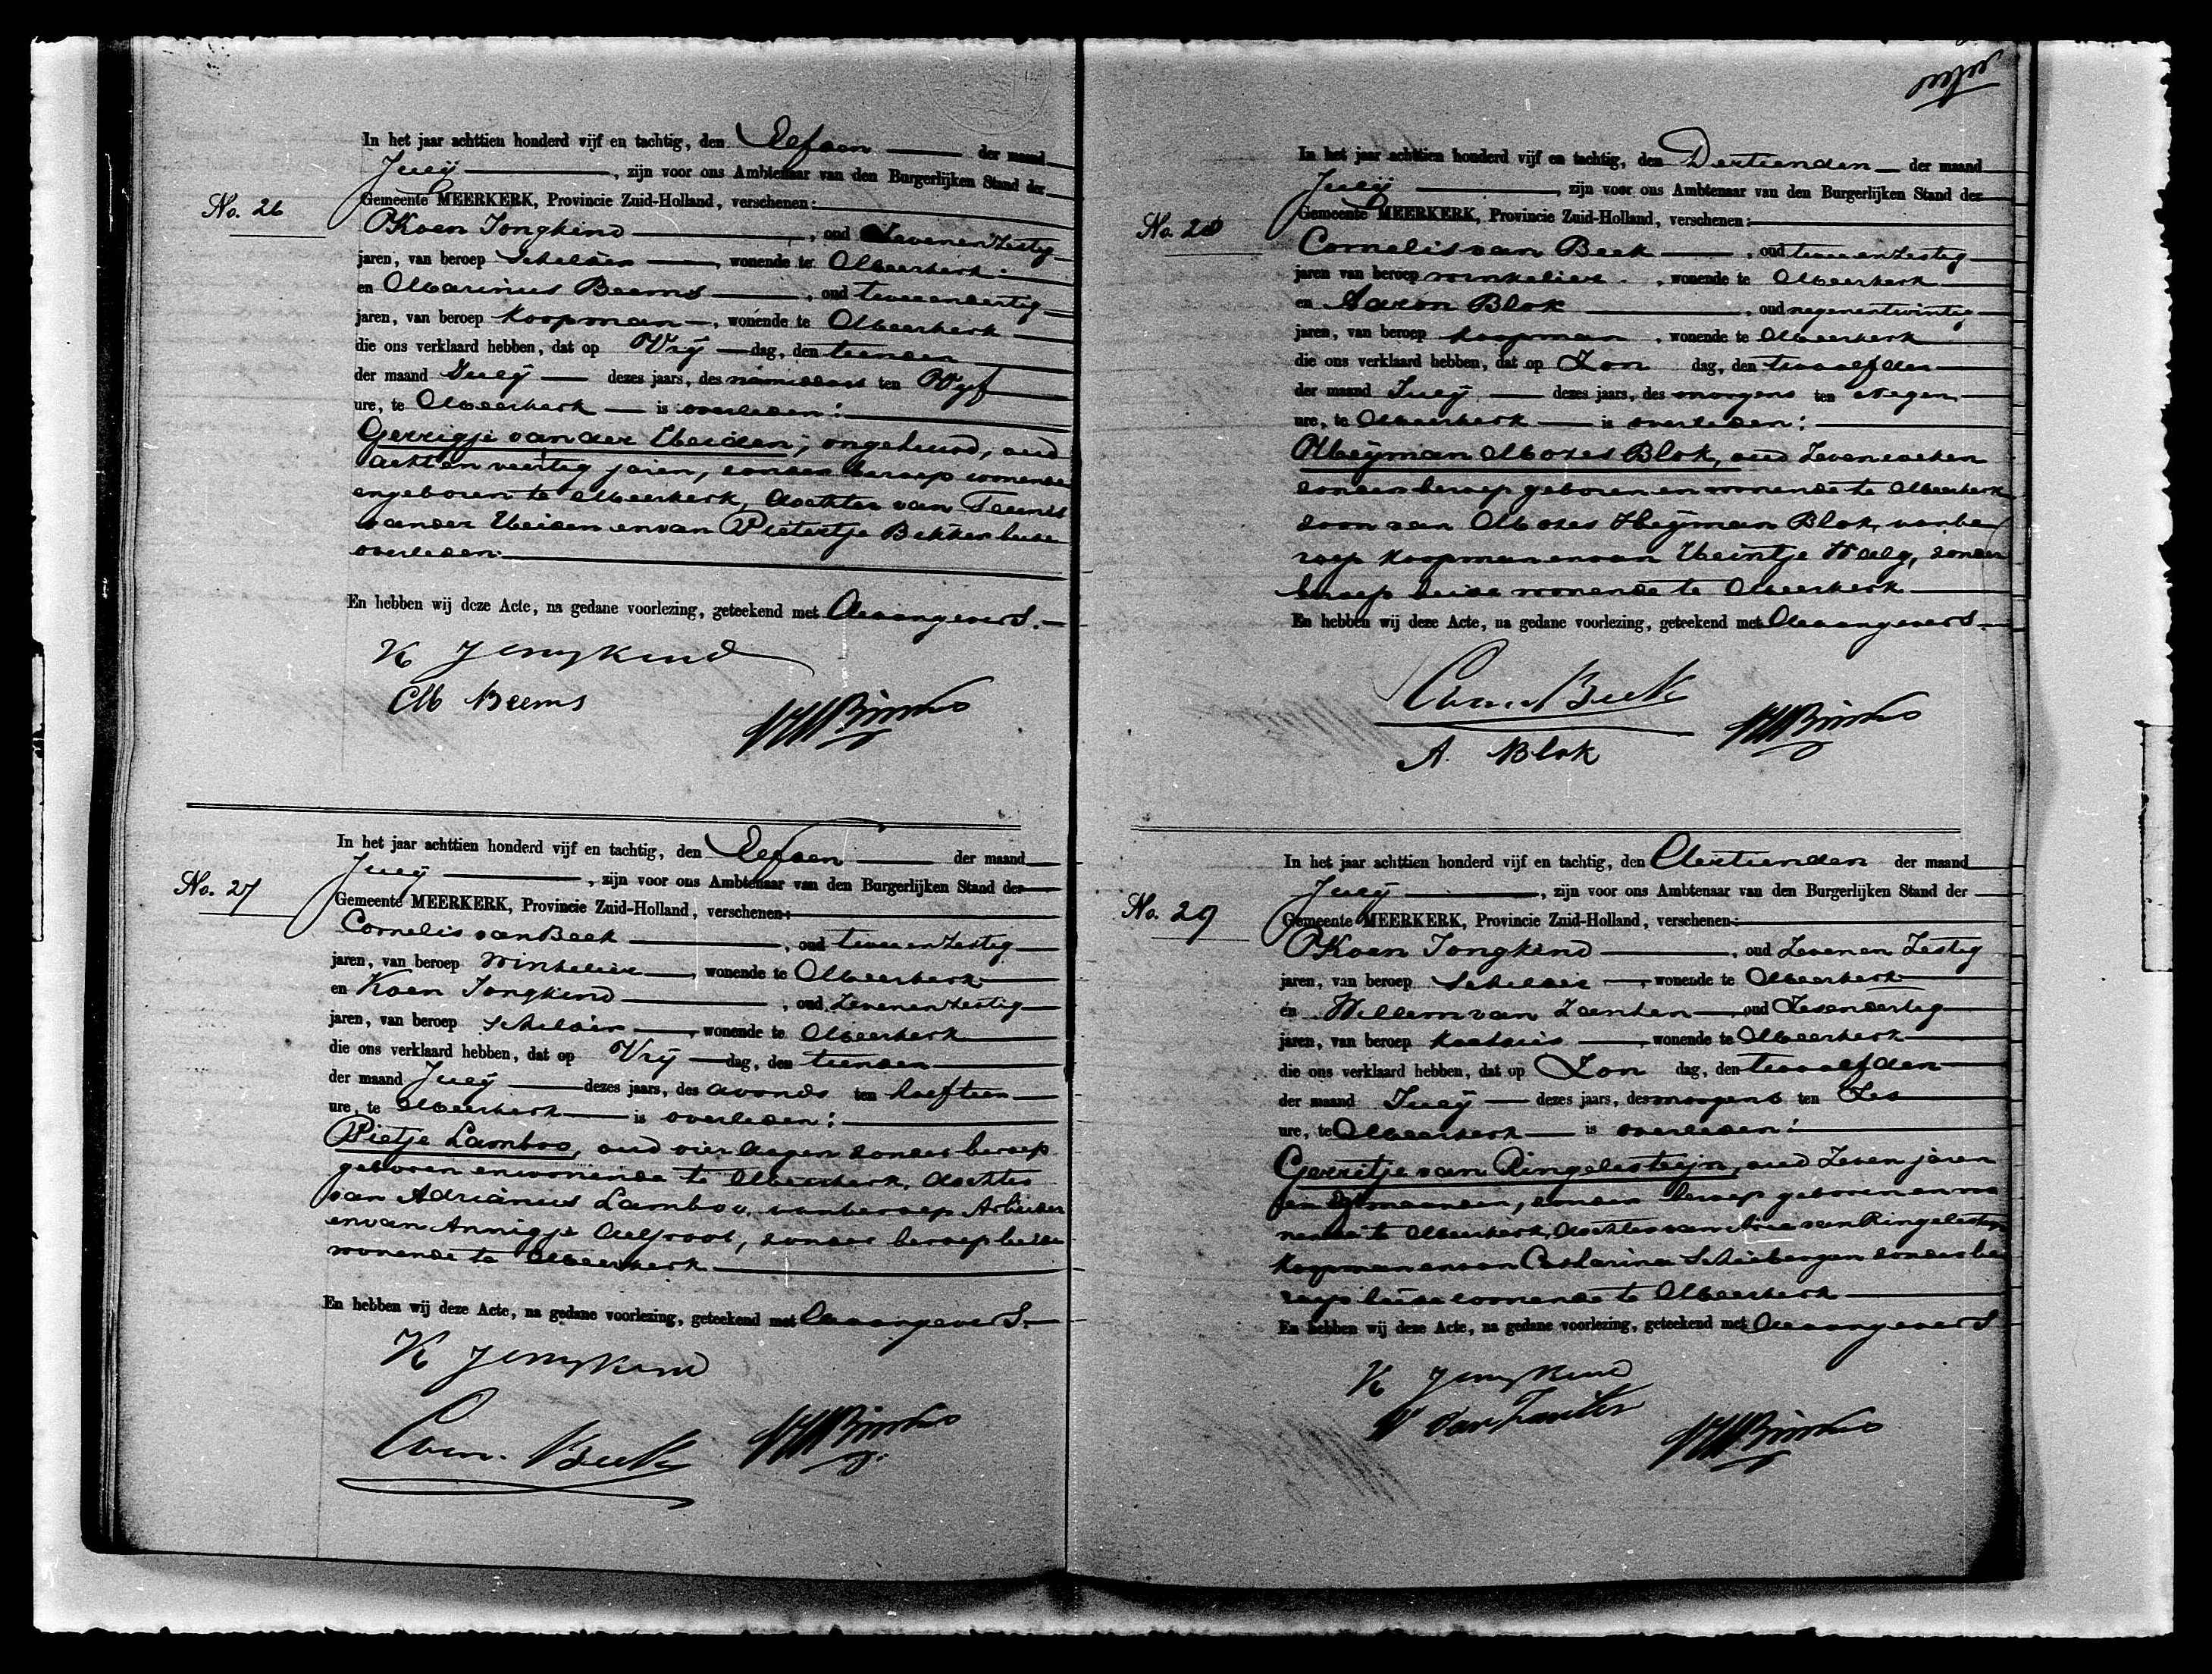 In het jaar achttien honderd vijf en tachtig, den Elfden der maand
July, zijn voor ons Ambtenaar van den Burgerlijken Stand der
No. 26
Gemeente MEERKERK, Provincie Zuid-Holland, verschenen:
Koen Jongkind, oud Zevenenzestig
jaren, van beroep Schilder, wonende te Meerkerk
en Marinus Beems, oud tweeendertig
jaren, van beroep Koopman, wonende te Meerkerk
die ons verklaard hebben, dat op Vrij dag, den tienden
der maand July dezes jaars, des namiddags ten Vyf
ure, te Meerkerk is overleden:
Gerrigje van der Heiden, ongehuwd, oud
achtenveertig jaren, zonder beroep wonende
en geboren te Meerkerk, dochter van Teunis
van der Heiden en van Pietertje Bekker beide
overleden.
En hebben wij deze Acte, na gedane voorlezing, geteekend met de aangevers.
K Jongkind
M Beems
In het jaar achttien honderd vijf en tachtig, den Elfden der maand
July, zijn voor ons Ambtenaar van den Burgerlijken Stand der
No. 27
Gemeente MEERKERK, Provincie Zuid-Holland, verschenen:
Cornelis van Beek, oud tweeenzestig
jaren, van beroep Winkelier, wonende te Meerkerk
en Koen Jongkind, oud Zevenenzestig
jaren, van beroep Schilder, wonende te Meerkerk
die ons verklaard hebben, dat op Vrij dag, den tienden
der maand July dezes jaars, des avonds ten half tien
ure, te Meerkerk is overleden:
Pietje Lamboo, oud vier dagen zonder beroep
geboren en wonende te Meerkerk, dochter
van Adrianus Lamboo, van beroep Arbeider
en van Annigje, zonder beroep beide
wonende te Meerkerk
En hebben wij deze Acte, na gedane voorlezing, geteekend met de aangevers.
K Jongkind
Corn. v Beek
In het jaar achttien honderd vijf en tachtig, den Dertienden der maand
July, zijn voor ons Ambtenaar van den Burgerlijken Stand der
No. 28
Gemeente MEERKERK, Provincie Zuid-Holland, verschenen:
Cornelis van Beek, oud tweeenzestig
jaren van beroep winkelier, wonende te Meerkerk
en Aaron Blok, oud negenentwintig
jaren, van beroep Koopman, wonende te Meerkerk
die ons verklaard hebben, dat op Zon dag, den twaalfden
der maand July dezes jaars, des morgens ten negen
ure, te Meerkerk is overleden:
Heyman Mozes Blok, oud Zeven weken
zonder beroep geboren en wonende te Meerkerk
zoon van Mozes Heyman Blok, van be
roep Koopman en van Heintje Walg, zonder
beroep beide wonende te Meerkerk
En hebben wij deze Acte, na gedane voorlezing, geteekend met de aangevers.
Corn. v Beek
A. Blok
In het jaar achttien honderd vijf en tachtig, den dertienden der maand
July, zijn voor ons Ambtenaar van den Burgerlijken Stand der
No. 29
Gemeente MEERKERK, Provincie Zuid-Holland, verschenen:
Koen Jongkind, oud Zevenen Zestig
jaren, van beroep Schilder, wonende te Meerkerk
en Willem van Zanten, oud Zesendertig
jaren, van beroep, wonende te Meerkerk
die ons verklaard hebben, dat op Zon dag, den twaalfden
der maand July dezes jaars, des morgens ten Zes
ure, te Meerkerk is overleden:
Gerritje van Ringelesteijn, oud Zeven jaren
en maanden, zonder beroep geboren en wo
nende te Meerkerk, dochter van van Ringelesteijn
Koopman en van Catharina Schiebergen zonder be
roep beide wonende te Meerkerk
En hebben wij deze Acte, na gedane voorlezing, geteekend met de aangevers
K Jongkind
W van Zanten